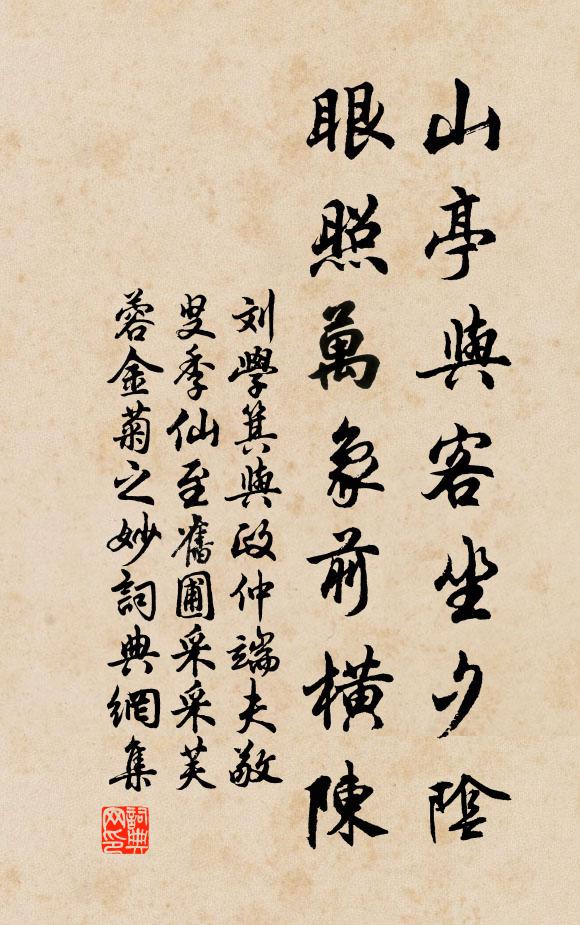 山亭與客坐夕陰
眼照萬象前橫陳
刘學箕與政仲端夫敬
叟季仙至舊圃采采芙
蓉金菊之妙詞典網集
詞典网印